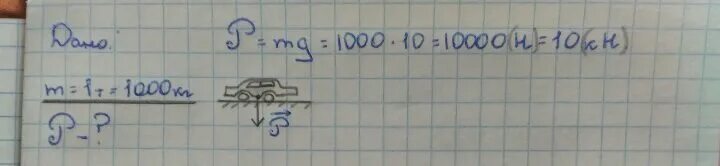 Дано:
P = mg = 1000 · 10 = 10000 (Н) = 10 (кН)
m = 1т = 1000кг
P - ?
P